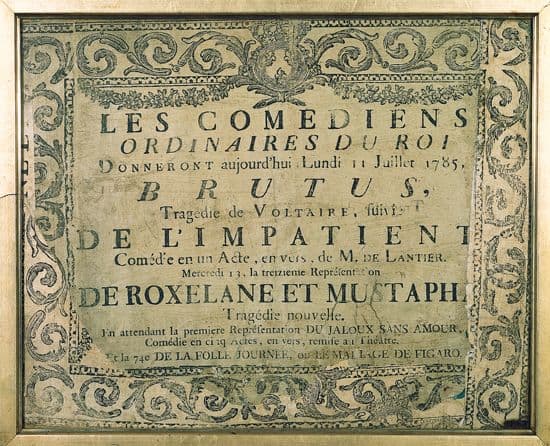 LES COMEDIENS
ORDINAIRES DU ROI
DONNERONT aujourd'hui Lundi 11 Juillet 1785,
BRUTUS,
Tragédie de VOLTAIRE, suivie
DE L'IMPATIENT
Comédie en un Acte, en vers, de M. DE LANTIER.
Mercredi 13, la treizieme Représentation
DE ROXELANE ET MUSTAPHA
Tragédie nouvelle.
En attendant la premiere Représentation DU JALOUX SANS AMOUR,
Comédie en cinq Actes, en vers, remise au Théatre.
Et la 74e DE LA FOLLE JOURNÉE, ou LE MARIAGE DE FIGARO.